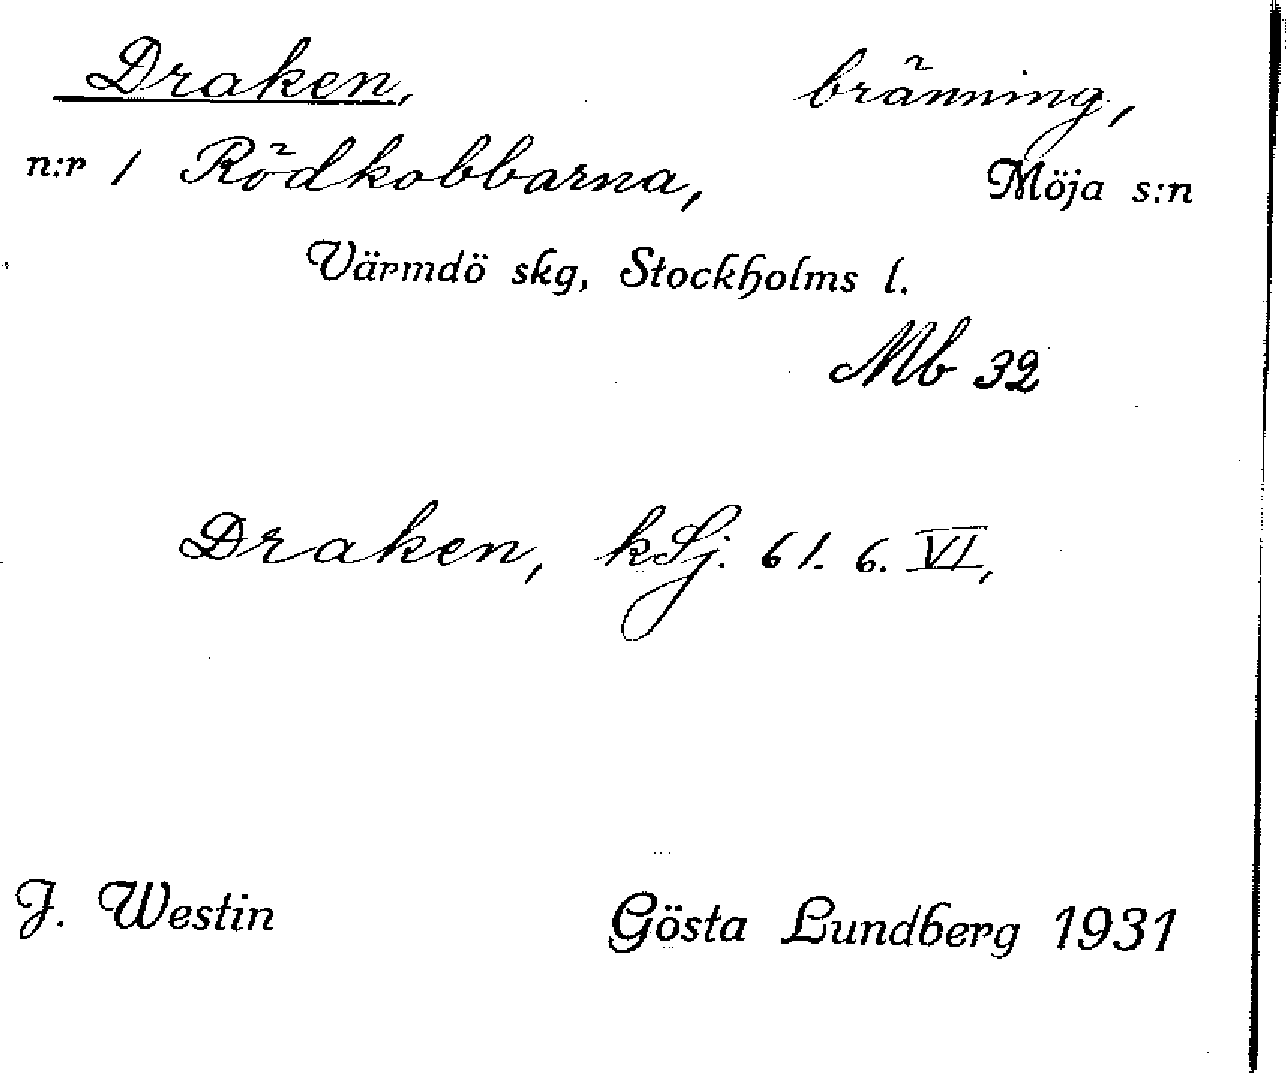 Draken, bränning,
n:r 1 Rödkobbarna, Möja s:n
Värmdö skg, Stockholms l.
Mb 32
Draken, kSj. 61. 6. VI,
J. Westin Gösta Lundberg 1931